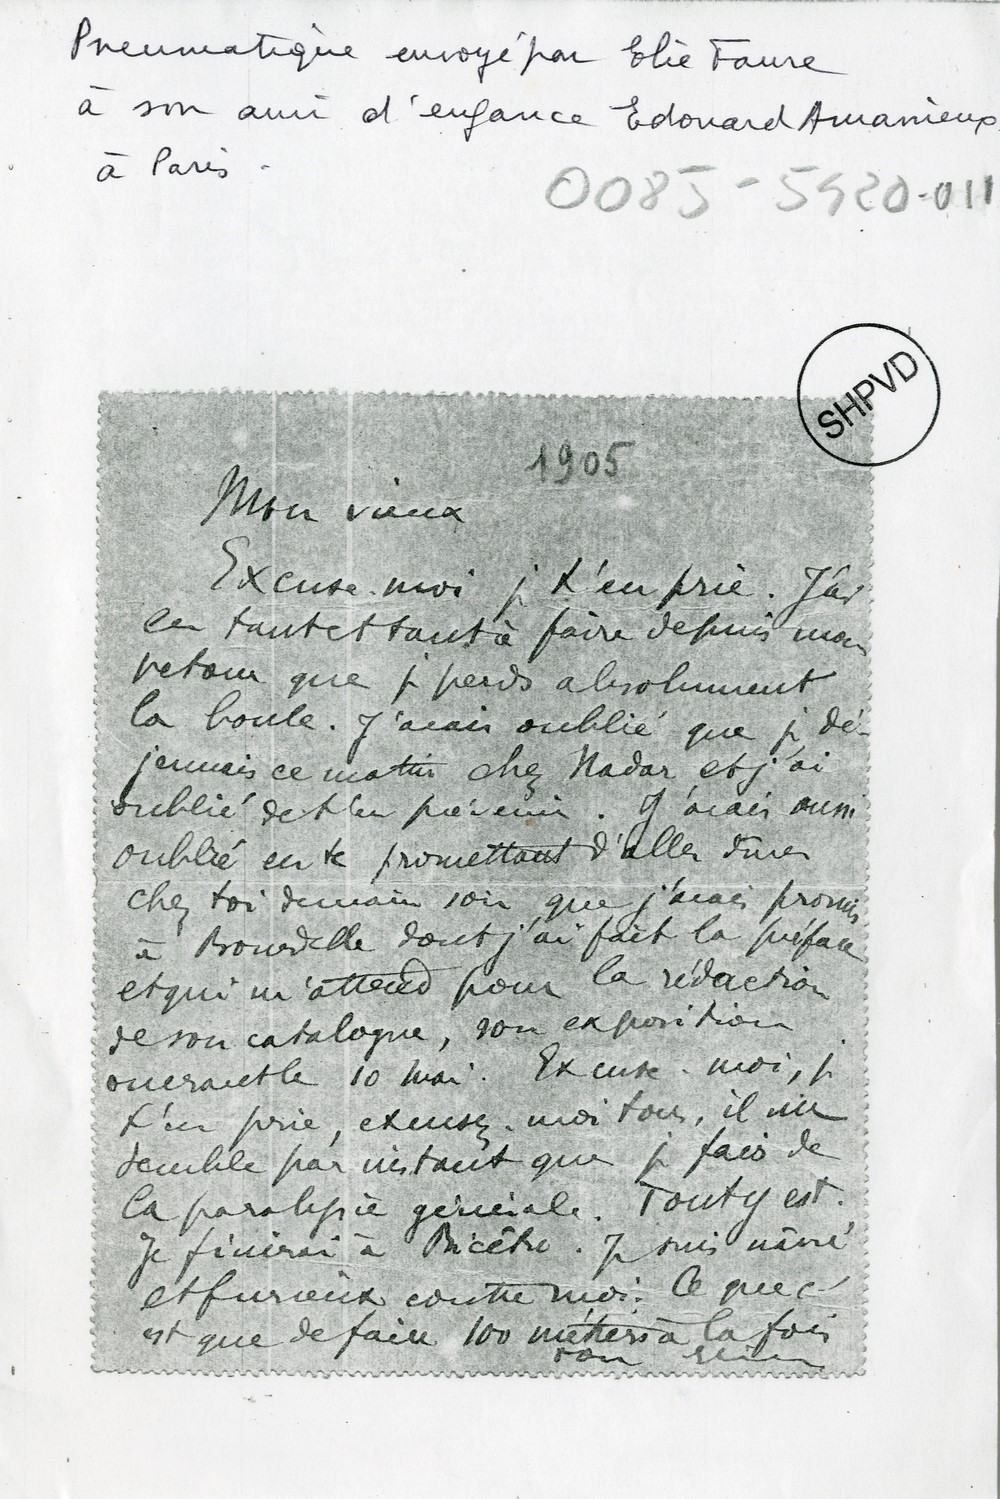 Pneumatique envoyé par Elie Faure
à son ami d'enfance Edouard Amanieux
à Paris.
0085-5920-011
SHPVD
1905
Mon vieux
Excuse-moi je t'en prie. J'ai
eu tant et tant à faire depuis mon
retour que je perds absolument
la boule. J'avais oublié que je dé-
jeunais ce matin chez Nadar et j'ai
oublié de t'en prévenir. J'avais aussi
oublié en te promettant d'aller dîner
chez toi demain soir que j'avais promis
à Bourdelle dont j'ai fait la préface
et qui m'attend pour la rédaction
de son catalogue, son exposition
ouvrant le 10 mai. Excuse-moi, je
t'en prie, excusez-moi tous, il me
semble par instant que je fais de
la paralysie générale. Tout y est.
Je finirai à Bicêtre. Je suis nâvré
et furieux contre moi. Ce que c'
est que de faire 100 métiers à la fois
ton